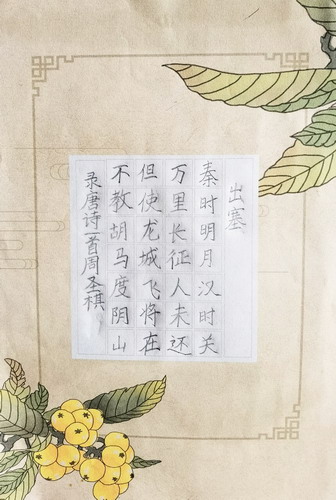 出塞
秦时明月汉时关
万里长征人未还
但使龙城飞将在
不教胡马度阴山
录唐诗一首周圣棋